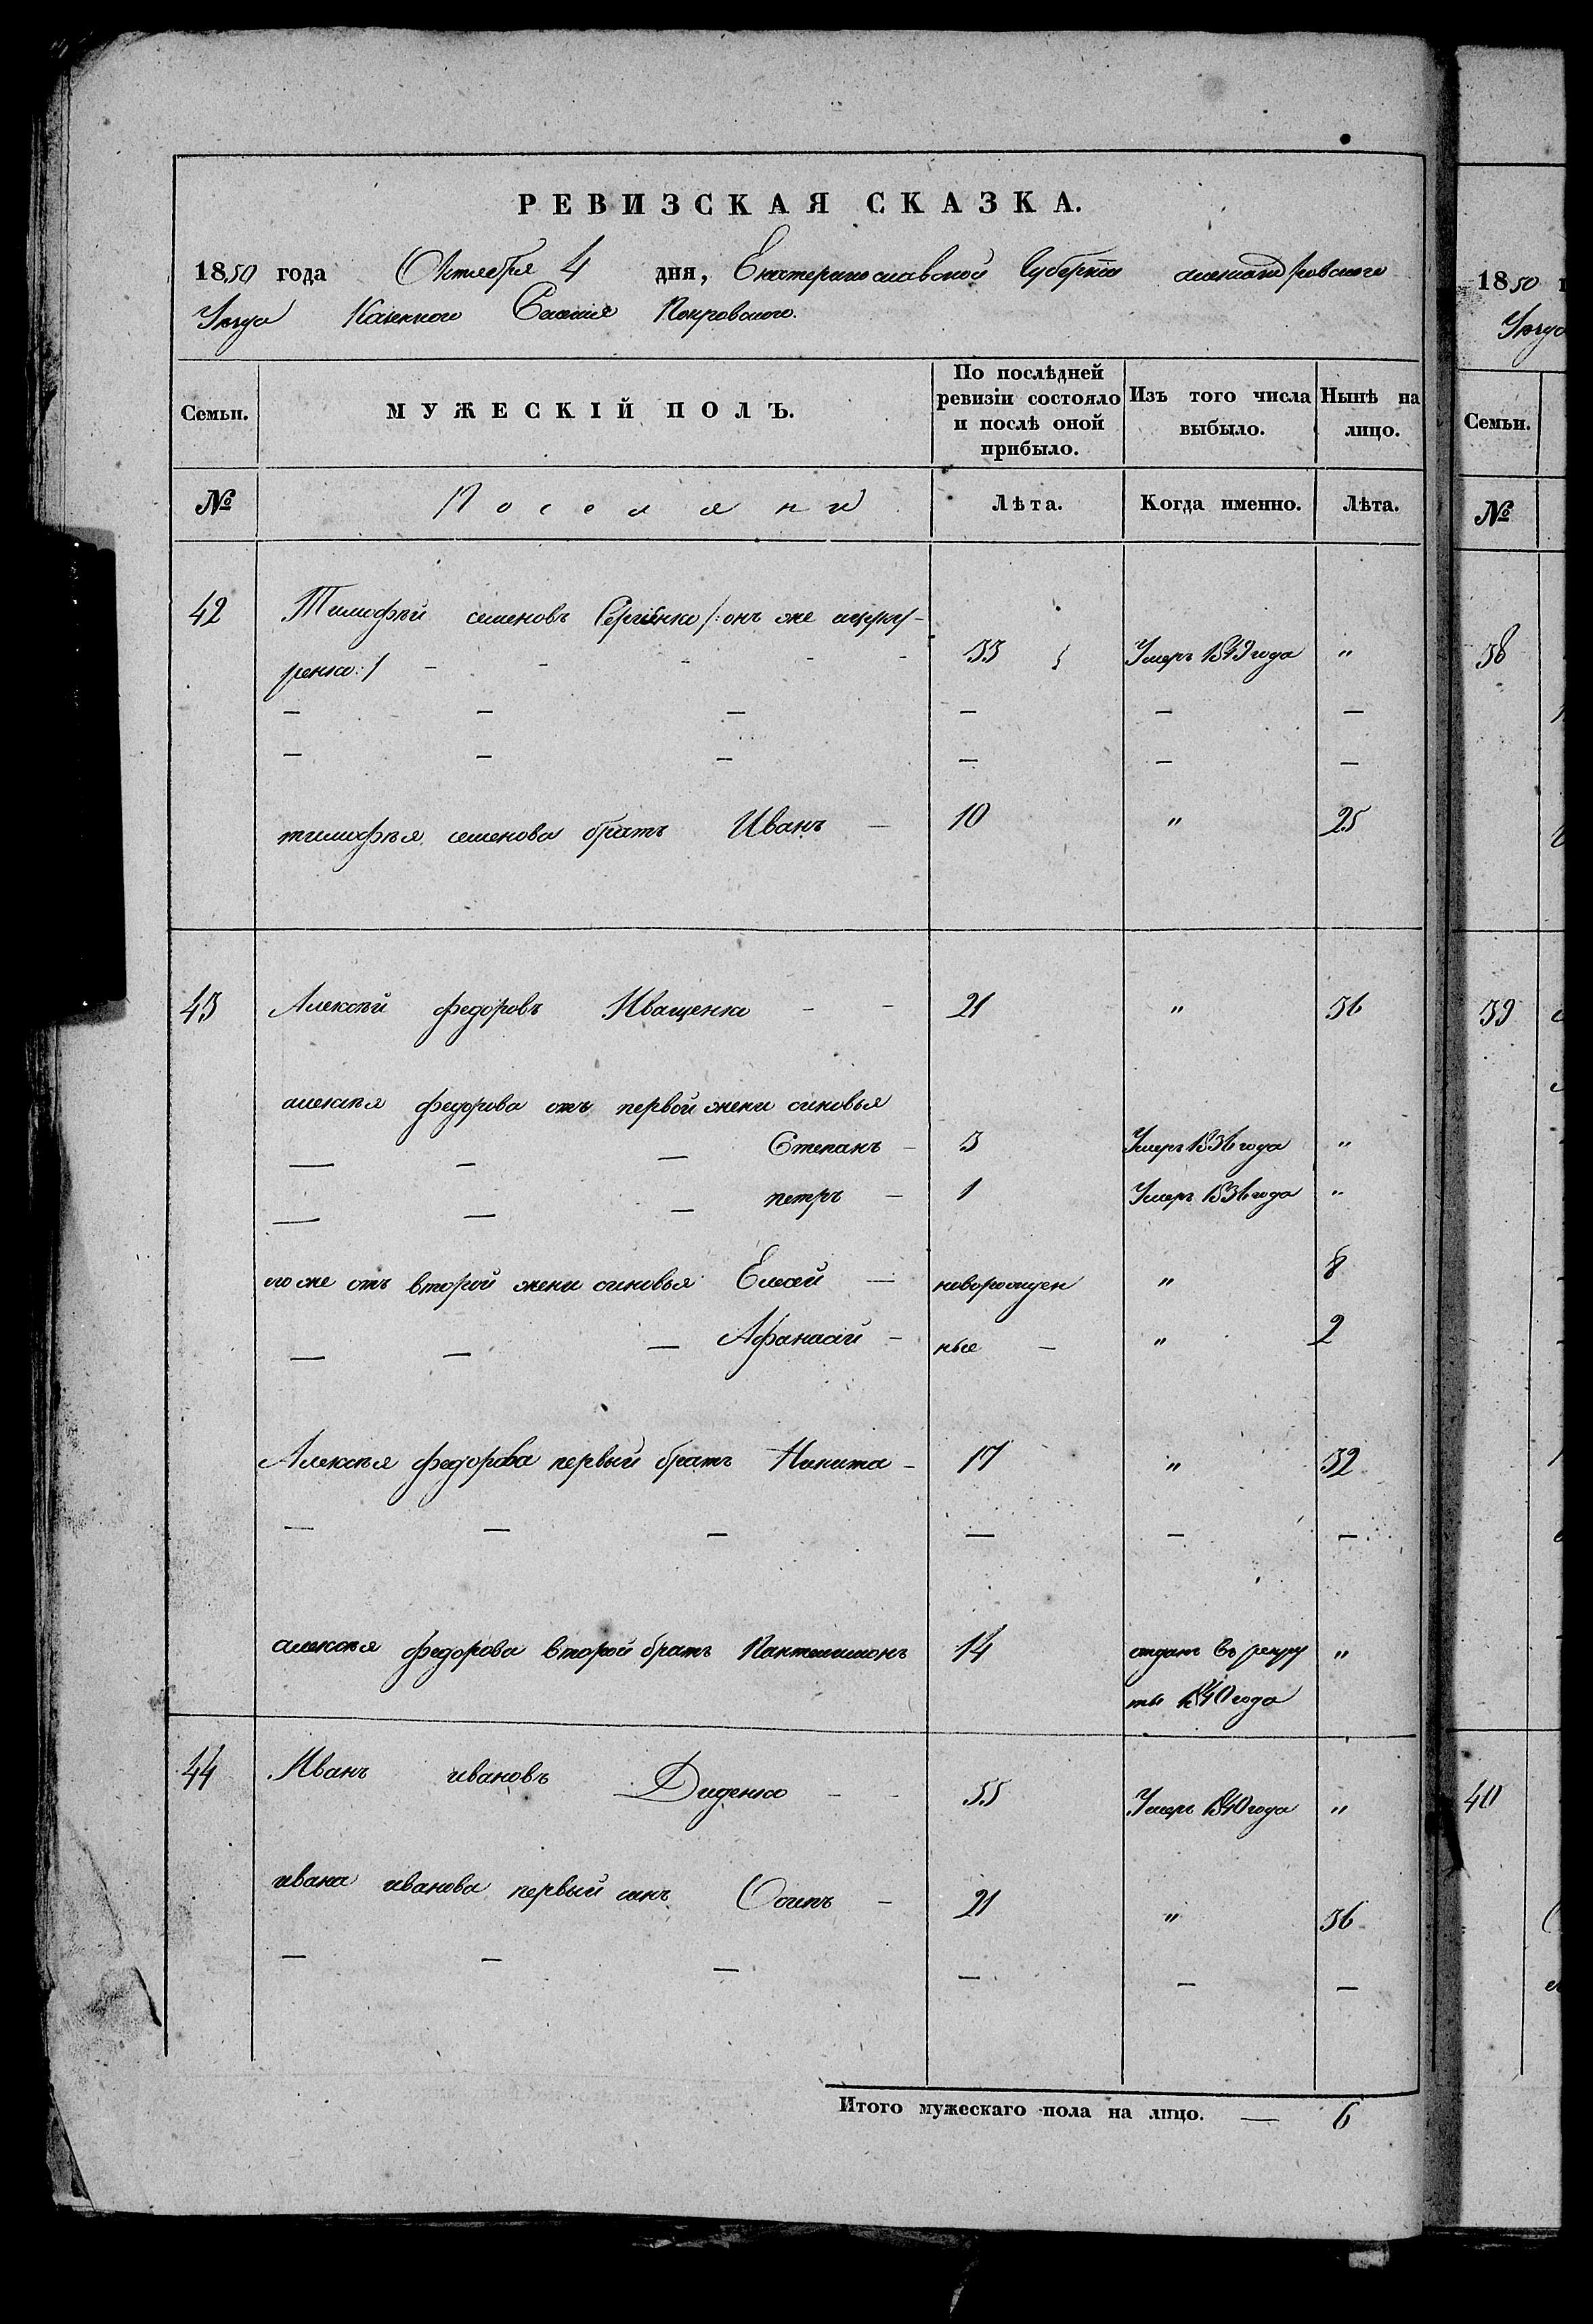 РЕВИЗСКАЯ СКАЗКА.
1850 года Октября 4 дня, Екатеринославской Губерніи александровского
Уезда Казенного Селенія Покровского.
Семьи. МУЖЕСКІЙ ПОЛЪ. По послѣдней ревизіи состояло и послѣ оной прибыло. Изъ того числа выбыло. Нынѣ на лицо.
№ Поселяни Лѣта. Когда именно. Лѣта.
42 Тимофѣй семеновъ Сергіенко /: онъ же
ренко :/ - - - - - 33 Умеръ 1849 года "
— — — — — —
— — — — — —
тимофѣя семенова братъ Иванъ — 10 " 25
43 Алексѣй федоровъ Иващенко - - 21 " 36
алексѣя федорова отъ первой жени синовья
— — — Степанъ - 3 Умеръ 1836 года "
— — — петръ - 1 Умеръ 1836 года "
его же отъ второй жени синовья Елесѣй — новорожден " 8
— — — Афанасій - ные - " 2
Алексѣя федорова первый братъ Никита - 17 " 32
— — — — — —
алексѣя федорова второй братъ Пантилимонъ 14 отданъ въ рекру "
ты 1840 года
44 Иванъ ивановъ Диденко - - 55 Умеръ 1840 года "
ивана иванова первый синъ Осипъ - 21 " 36
— — — — — —
Итого мужескаго пола на лицо. — 6
1850
Уезда
Семьи.
№
38
39
40